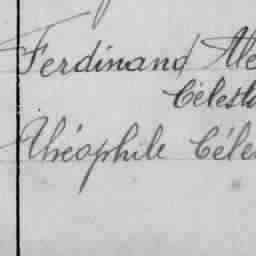 Ferdinand Ale
Célesti
Théophile Céles